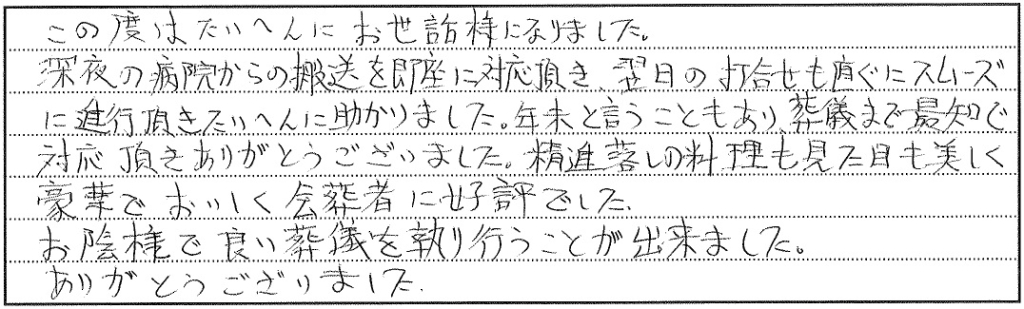 この度はたいへんに お世話様になりました。
深夜の病院からの搬送を即座に対応頂き、翌日の打合せも直ぐにスムーズ
に進行頂きたいへんに助かりました。年末と言うこともあり、葬儀まで最短で
対応頂きありがとうございました。精進落しの料理も見た目も美しく
豪華で おいしく会葬者に好評でした。
お陰様で良い葬儀を執り行うことが出来ました。
ありがとうございました。